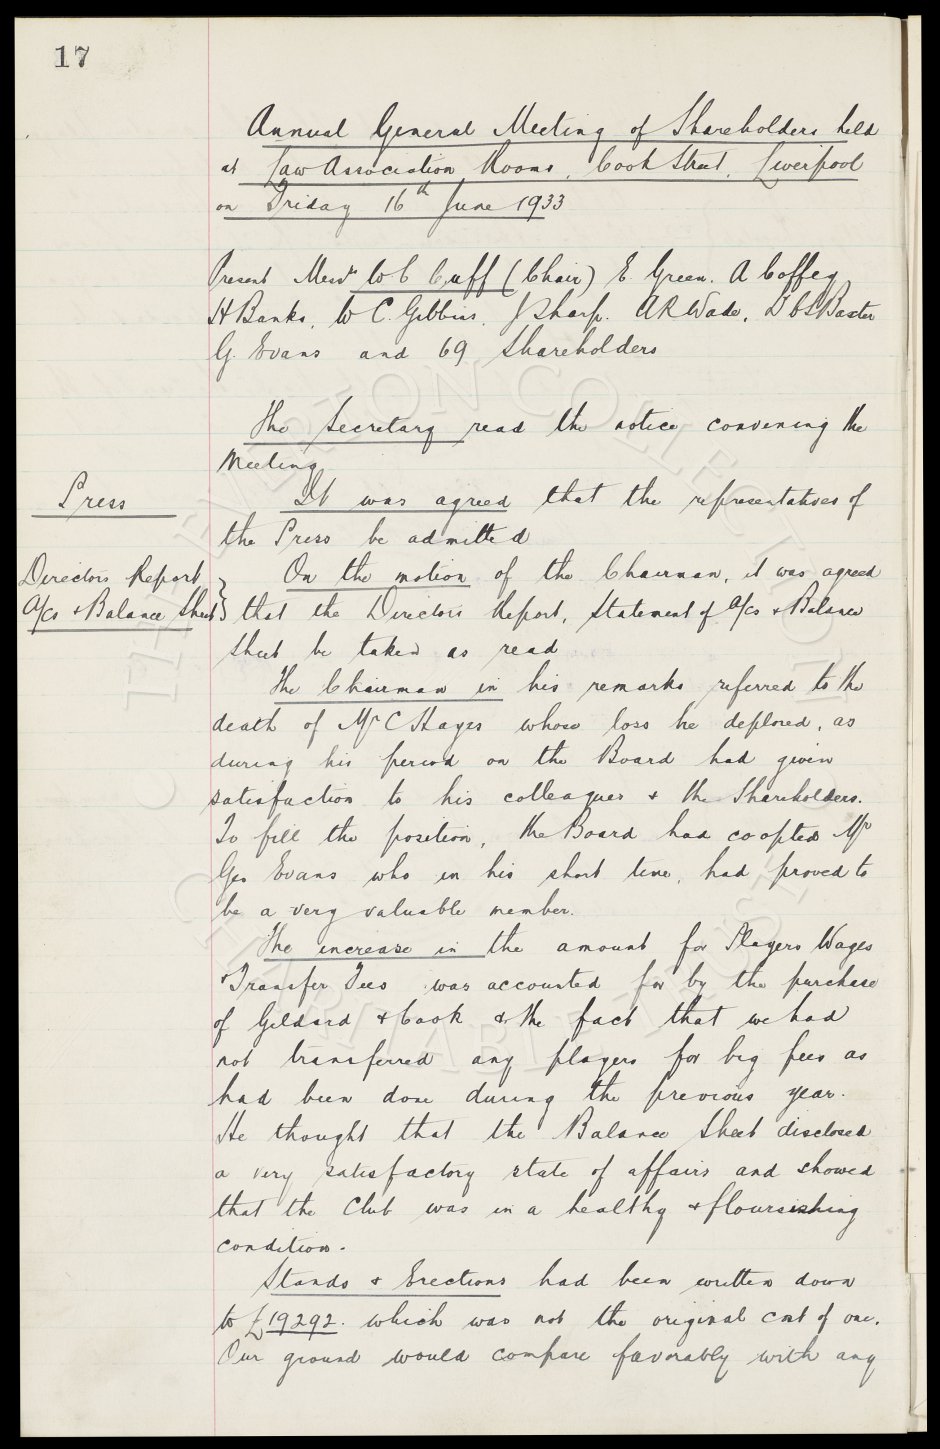 17
Annual General Meeting of Shareholders held
at Law Association Rooms, Cook Street, Liverpool
on Friday 16th June 1933
Present Messrs W C Cuff (Chair) E. Green. A Coffey
H Banks, W C. Gibbins, J Sharp. A R Wade, D C S Baxter
G. Evans and 69 Shareholders
The Secretary read the notice convening the
Meeting
Press
It was agreed that the representatives of
the Press be admitted
Directors Report
A/cs & Balance Sheet
On the motion of the Chairman, it was agreed
that the Directors Report, Statement of A/cs & Balance
Sheet be taken as read
The Chairman in his remarks referred to the
death of Mr C Hayes whose loss he deplored, as
during his period on the Board had given
satisfaction to his colleagues & the Shareholders.
To fill the position, the Board had coopted Mr
Geo Evans who in his short time, had proved to
be a very valuable member.
The increase in the amount for Players Wages
& Transfer Fees was accounted for by the purchase
of Geldard & Cook & the fact that we had
not transferred any players for big fees as
had been done during the previous year.
He thought that the Balance Sheet disclosed
a very satisfactory state of affairs and showed
that the Club was in a healthy & flourishing
condition.
Stands & Erections had been written down
to £19292. which was not the original cost of one.
Our ground would compare favorably with any
THE EVERTON COLLECTION
CHARITABLE TRUST